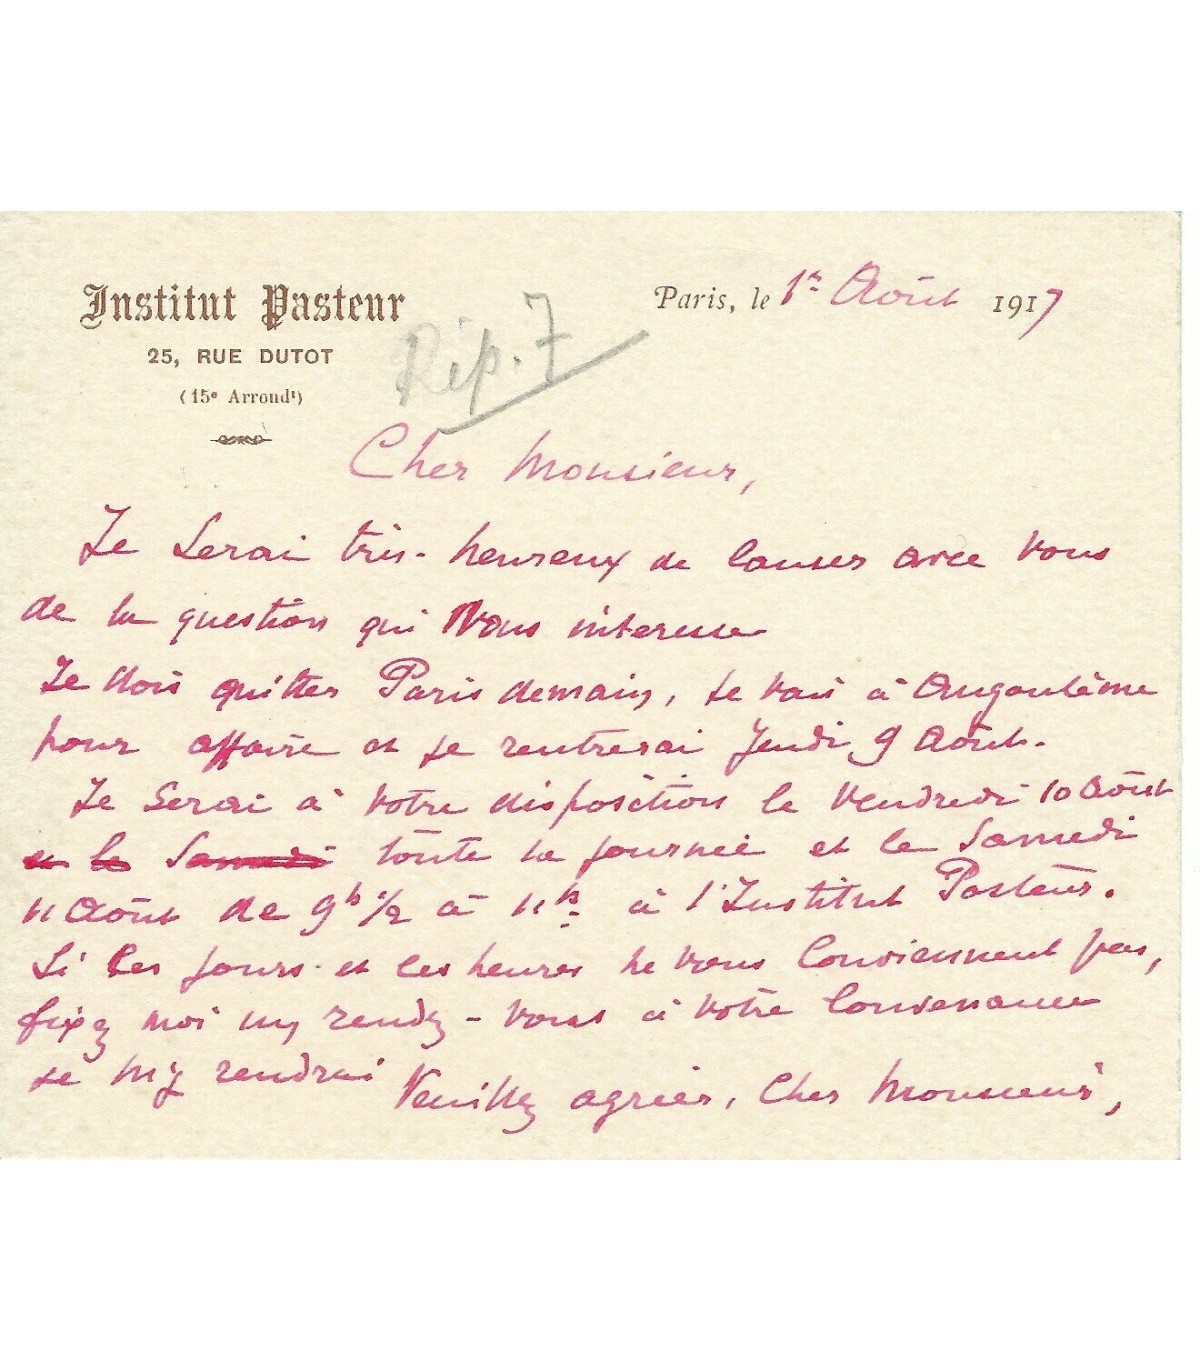 Institut Pasteur
25, RUE DUTOT
(15e Arrondt)
Paris, le 1er Août 1917
Rép. 7
Cher Monsieur,
Je serai très-heureux de causer avec vous
de la question qui vous intéresse
Je dois quitter Paris demain, je vais à Angoulême
pour affaire et je rentrerai Jeudi 9 Août.
Je serai à votre disposition le vendredi 10 Août
et le Samedi toute la journée et le Samedi
11 Août de 9h 1/2 à 11h à l'Institut Pasteur.
Si les jours et ces heures ne vous conviennent pas,
fixez moi un rendez-vous à votre convenance
je m'y rendrai Veuillez agréer, Cher Monsieur,